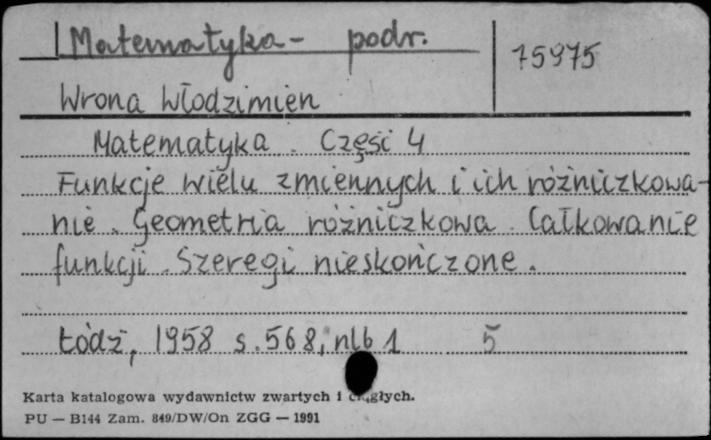 Matematyka - podr.
15975
Wrona Włodzimierz
Matematyka. Część 4
Funkcje wielu zmiennych i ich różniczkowa-
nie. Geometria różniczkowa. Całkowanie
funkcji. Szeregi nieskończone.
Łódź, 1958 s. 568, nlb 1 5
Karta katalogowa wydawnictw zwartych i ciągłych.
PU — B144 Zam. 849/DW/On ZGG — 1991